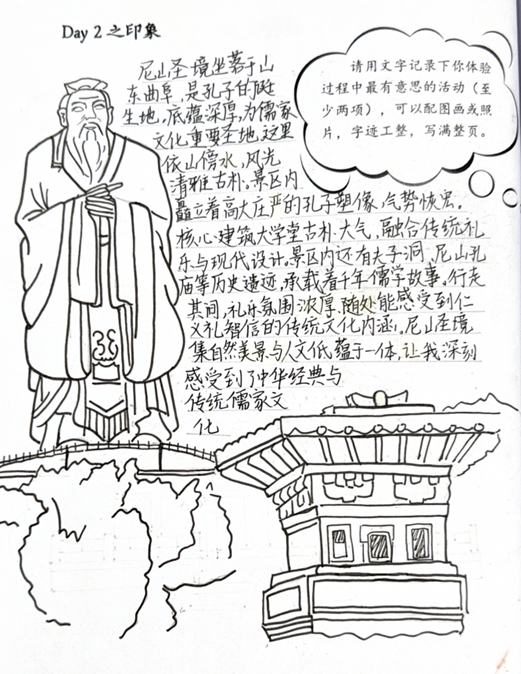 Day 2 之印象
请用文字记录下你体验
过程中最有意思的活动（至
少两项），可以配图画或照
片，字迹工整，写满整页。
尼山圣境坐落于山
东曲阜，是孔子的诞
生地，底蕴深厚，为儒家
文化重要圣地。这里
依山傍水，风光
清雅古朴。景区内
矗立着高大庄严的孔子塑像，气势恢宏。
核心建筑大学堂古朴大气，融合传统礼
乐与现代设计。景区内还有夫子洞、尼山孔
庙等历史遗迹，承载着千年儒学故事。行走
其间，礼乐氛围浓厚，随处能感受到仁
义礼智信的传统文化内涵。尼山圣境
集自然美景与人文底蕴于一体，让我深刻
感受到了中华经典与
传统儒家文
化